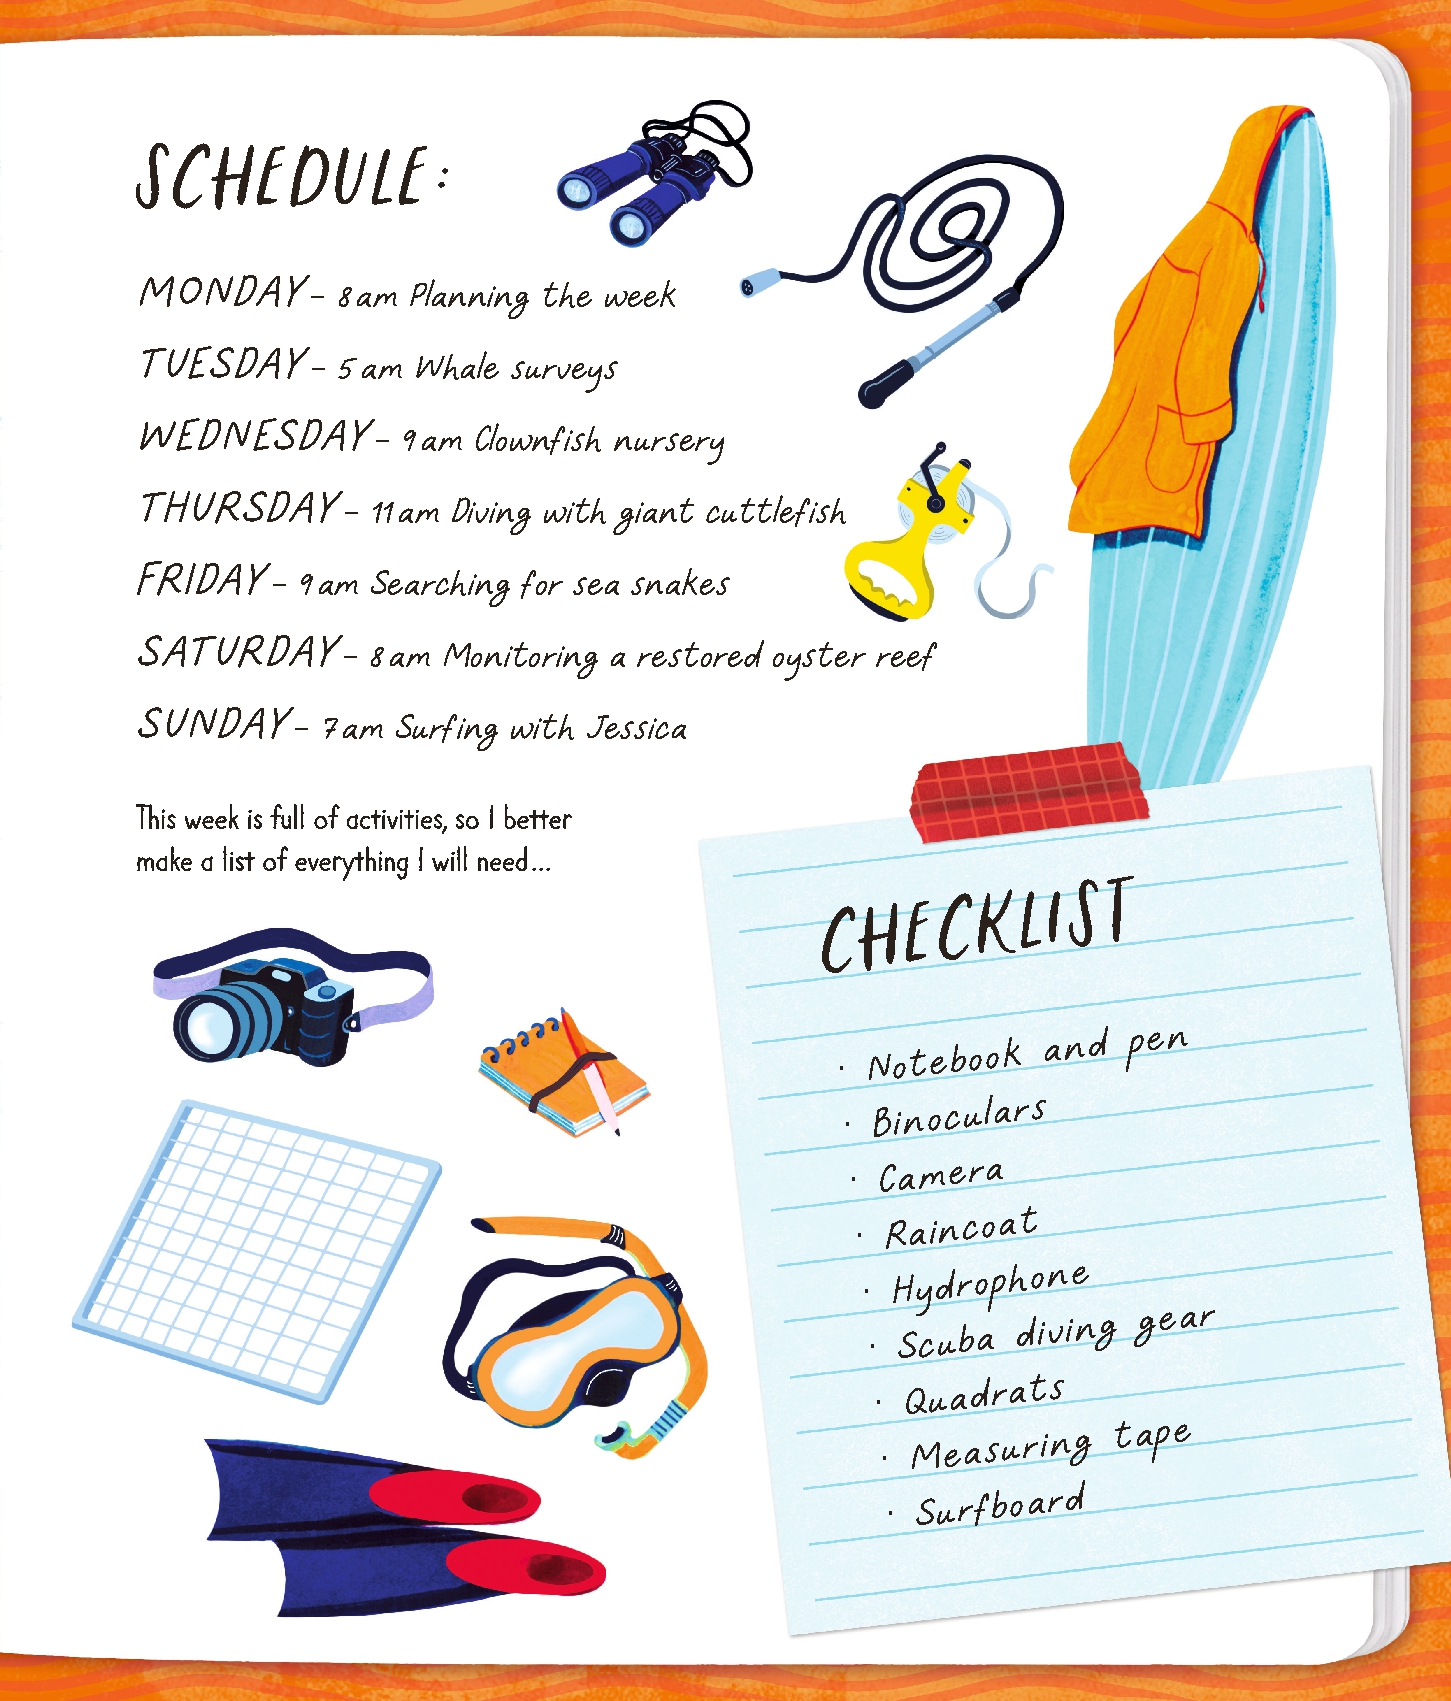 SCHEDULE:
MONDAY – 8am Planning the week
TUESDAY – 5am Whale surveys
WEDNESDAY – 9am Clownfish nursery
THURSDAY – 11am Diving with giant cuttlefish
FRIDAY – 9am Searching for sea snakes
SATURDAY – 8am Monitoring a restored oyster reef
SUNDAY – 7am Surfing with Jessica
This week is full of activities, so I better
make a list of everything I will need...
CHECKLIST
· Notebook and pen
· Binoculars
· Camera
· Raincoat
· Hydrophone
· Scuba diving gear
· Quadrats
· Measuring tape
· Surfboard